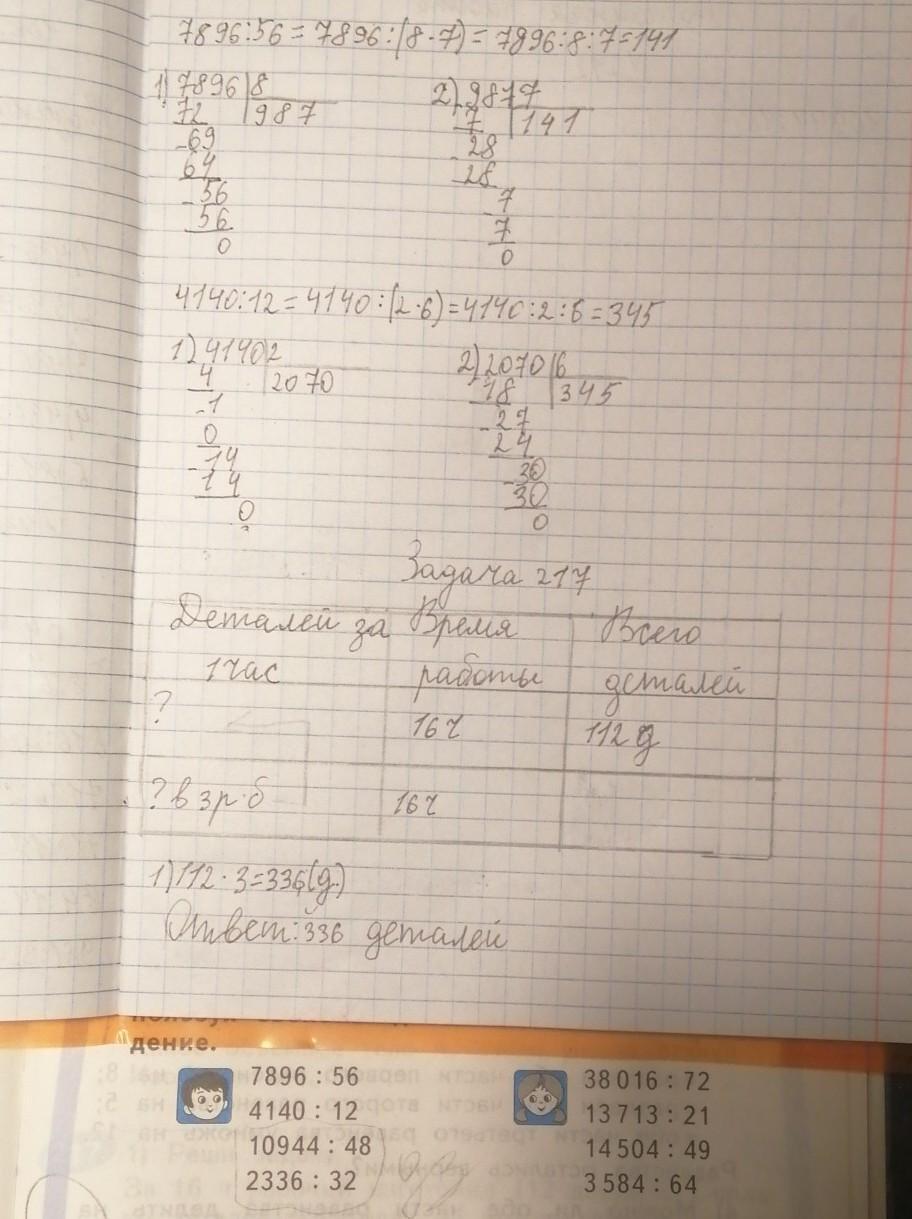 7896:56=7896:(8·7)=7896:8:7=141
1) 7896 8 2) 987 7
72 987 7 141
-69 28
64 -28
-56 -7
56 7
0 0
4140:12=4140:(2·6)=4140:2:6=345
1) 4140 2 2) 2070 6
4 2070 18 345
-1 -27
0 24
-14 -30
14 30
0 0
Задача 217
Деталей за Время Всего
1 час работы деталей
? 16ч 112 д
? в 3 р·б 16ч
1) 112·3=336(д.)
Ответ: 336 деталей
дение.
7896 : 56 38 016 : 72
4140 : 12 13 713 : 21
10944 : 48 14 504 : 49
2336 : 32 3 584 : 64